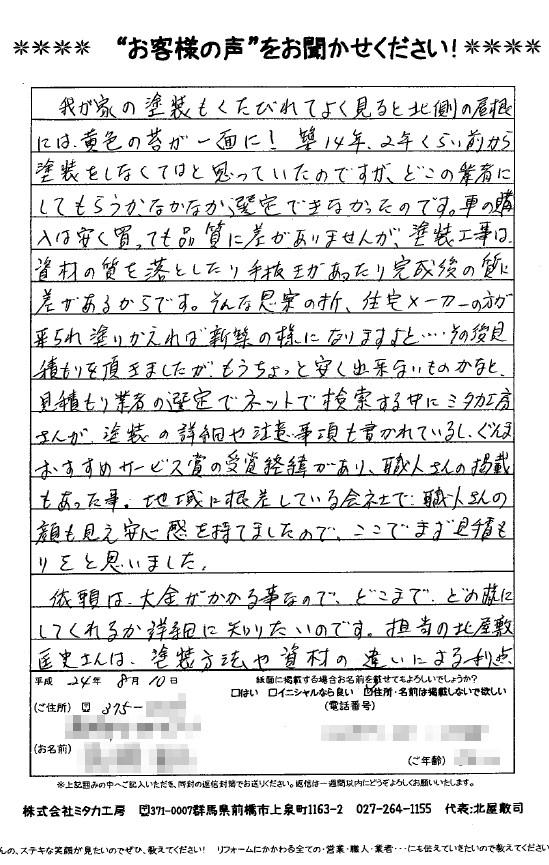 ＊＊＊＊ “お客様の声”をお聞かせください！＊＊＊＊
我が家の塗装もくたびれてよく見ると北側の屋根
には、黄色の苔が一面に！ 築14年、2年くらい前から
塗装をしなくてはと思っていたのですが、どこの業者に
してもらうかなかなか、選定できなかったのです。車の購
入は安く買っても品質に差がありませんが、塗装工事は、
資材の質を落としたり手抜工があったり完成後の質に
差があるからです。そんな思案の折、住宅メーカーの方が
来られ塗りかえれば新築の様になりますよと…その後見
積もりを頂きましたが、もうちょっと安く出来ないものかなと、
見積もり業者の選定でネットで検索する中にミタカ工房
さんが、塗装の詳細や注意事項も書かれているし、ぐんま
おすすめサービス賞の受賞経緯があり、職人さんの掲載
もあった事。地域に根差している会社で、職人さんの
顔も見え安心感を持てましたので、ここでまず見積も
りをと思いました。
依頼は、大金がかかる事なので、どこまで、どの様に
してくれるか詳細に知りたいのです。担当の北屋敷
匡史さんは、塗装方法や資材の違いによる利点
平成 24年 8月 10日
紙面に掲載する場合お名前を載せてもよろしいでしょうか？
□はい □イニシャルなら良い ☑住所・名前は掲載しないで欲しい
（ご住所） 〒 375-
（電話番号）
（お名前）
（ご年齢）
※上記囲みの中へご記入いただき、同封の返信封筒でお送りください。返信は一週間以内にどうぞよろしくお願いいたします。
株式会社ミタカ工房 〒371-0007群馬県前橋市上泉町1163-2 027-264-1155 代表:北屋敷司
んの、ステキな笑顔が見たいのでぜひ、教えてください！ リフォームにかかわる全ての・営業・職人・業者・・・にも伝えていきたいので教えてくださ